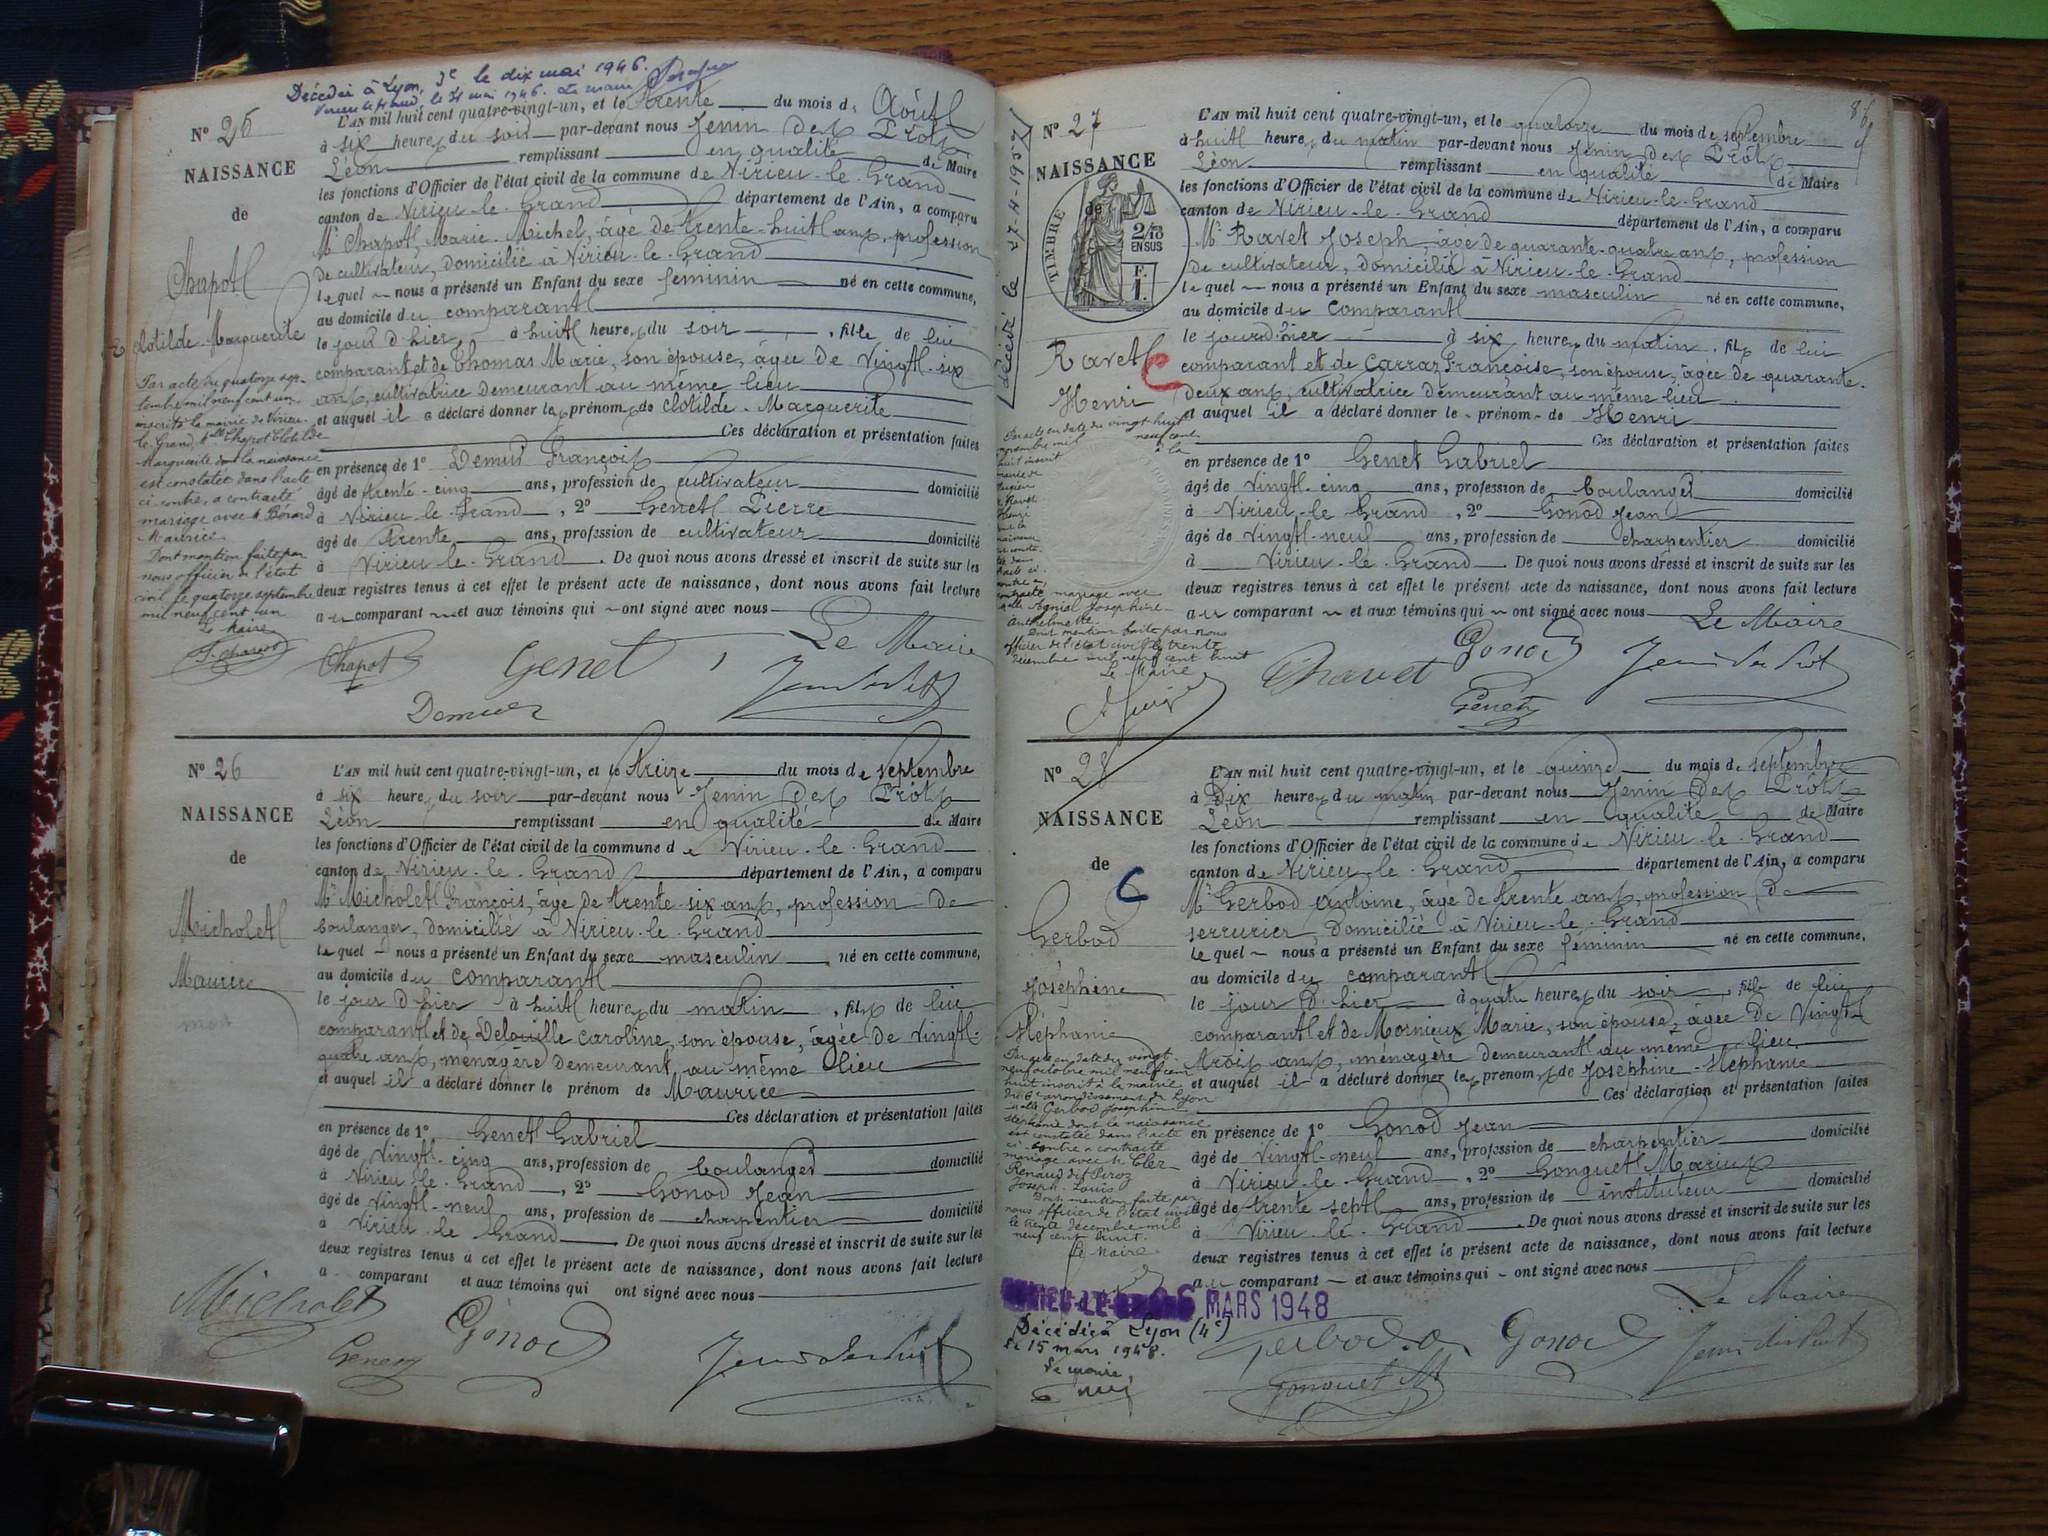 Décédée à Lyon, 3e le dix mai 1946.
le 31 mai 1946. Le maire
No 25
NAISSANCE
de
Chapot
Clotilde Marguerite
Par acte du quatorze sep-
tembre mil neuf cent un
inscrit à la mairie de Virieu-
le-Grand, Melle Chapot Clotilde
Marguerite dont la naissance
est constatée dans l'acte
ci-contre, a contracté
mariage avec M. Bérard
Maurice
Dont mention faite par
nous officier de l'état
civil le quatorze septembre
mil neuf cent un
Le Maire
L'AN mil huit cent quatre-vingt-un, et le trente du mois d'Août
à six heures du soir par-devant nous Jenin des Prôts
Léon remplissant en qualité de Maire
les fonctions d'Officier de l'état civil de la commune de Virieu-le-Grand
canton de Virieu-le-Grand département de l'Ain, a comparu
Mr Chapot Marie-Michel, âgé de trente-huit ans, profession
de cultivateur, domicilié à Virieu-le-Grand
lequel nous a présenté un Enfant du sexe feminin né en cette commune,
au domicile du comparant
le jour d'hier, à huit heures du soir, fille de lui
comparant et de Thomas Marie, son épouse, âgée de Vingt-six
ans, cultivatrice demeurant au même lieu
et auquel il a déclaré donner les prénoms de Clotilde-Marguerite
Ces déclaration et présentation faites
en présence de 1o Demur François
âgé de trente-cinq ans, profession de cultivateur domicilié
à Virieu-le-Grand, 2o Genet Pierre
âgé de trente ans, profession de cultivateur domicilié
à Virieu-le-Grand. De quoi nous avons dressé et inscrit de suite sur les
deux registres tenus à cet effet le présent acte de naissance, dont nous avons fait lecture
au comparant et aux témoins qui ont signé avec nous
Le Maire
Chapot Genet Jenin des Prôts
No 26
NAISSANCE
de
Micholet
Maurice
mort
L'AN mil huit cent quatre-vingt-un, et le treize du mois de septembre
à six heures du soir par-devant nous Jenin des Prôts
Léon remplissant en qualité de Maire
les fonctions d'Officier de l'état civil de la commune de Virieu-le-Grand
canton de Virieu-le-Grand département de l'Ain, a comparu
Mr Micholet François, âgé de trente-six ans, profession de
boulanger, domicilié à Virieu-le-Grand
lequel nous a présenté un Enfant du sexe masculin né en cette commune,
au domicile du comparant
le jour d'hier à huit heures du matin, fils de lui
comparant et de Delouille Caroline, son épouse, âgée de vingt-
quatre ans, ménagère demeurant au même lieu
et auquel il a déclaré donner le prénom de Maurice
Ces déclaration et présentation faites
en présence de 1o Genet Gabriel
âgé de vingt-cinq ans, profession de boulanger domicilié
à Virieu-le-Grand, 2o Gonod Jean
âgé de vingt-neuf ans, profession de charpentier domicilié
à Virieu-le-Grand. De quoi nous avons dressé et inscrit de suite sur les
deux registres tenus à cet effet le présent acte de naissance, dont nous avons fait lecture
a comparant et aux témoins qui ont signé avec nous
Micholet Gonod
Genet Jenin des Prôts
86
décédé le
No 27
NAISSANCE
de
TIMBRE
2/10
EN SUS
F.
1.
Ravet
Henri
mariage avec
Melle Agniel Joséphine
Anthelmette.
Dont mention faite par nous
officier de l'état civil le trente
décembre mil neuf cent huit
Le Maire
L'AN mil huit cent quatre-vingt-un, et le quatorze du mois de septembre
à huit heures du matin par-devant nous Jenin des Prôts
Léon remplissant en qualité de Maire
les fonctions d'Officier de l'état civil de la commune de Virieu-le-Grand
canton de Virieu-le-Grand département de l'Ain, a comparu
Mr Ravet Joseph, âgé de quarante-quatre ans, profession
de cultivateur, domicilié à Virieu-le-Grand
lequel nous a présenté un Enfant du sexe masculin né en cette commune,
au domicile du comparant
le jour d'hier à six heures du matin, fils de lui
comparant et de Carraz Françoise, son épouse, âgée de quarante-
deux ans, cultivatrice demeurant au même lieu
et auquel il a déclaré donner le prénom de Henri
Ces déclaration et présentation faites
en présence de 1o Genet Gabriel
âgé de vingt-cinq ans, profession de boulanger domicilié
à Virieu-le-Grand, 2o Gonod Jean
âgé de vingt-neuf ans, profession de charpentier domicilié
à Virieu-le-Grand. De quoi nous avons dressé et inscrit de suite sur les
deux registres tenus à cet effet le présent acte de naissance, dont nous avons fait lecture
au comparant et aux témoins qui ont signé avec nous
Le Maire
Ravet Gonod Jenin des Prôts
Genet
No 28
NAISSANCE
de
Gerbod
Joséphine
Stéphanie
Par acte en date du vingt-
neuf octobre mil neuf cent
huit inscrit à la mairie
du 6e arrondissement de Lyon
Melle Gerbod Joséphine
Stéphanie dont la naissance
est constatée dans l'acte
ci-contre a contracté
mariage avec M. Cler-
Renaud dit Piroz
Joseph Louis
Dont mention faite par
nous officier de l'état civil
le trente décembre mil
neuf cent huit.
Le Maire
MARS 1948
Décédée à Lyon (4e)
le 15 mars 1948.
Le maire,
L'AN mil huit cent quatre-vingt-un, et le quinze du mois de septembre
à Dix heures du matin par-devant nous Jenin des Prôts
Léon remplissant en qualité de Maire
les fonctions d'Officier de l'état civil de la commune de Virieu-le-Grand
canton de Virieu-le-Grand département de l'Ain, a comparu
Mr Gerbod Antoine, âgé de trente ans, profession de
serrurier, domicilié à Virieu-le-Grand
lequel nous a présenté un Enfant du sexe féminin né en cette commune,
au domicile du comparant
le jour d'hier à quatre heures du soir, fille de lui
comparant et de Mornieux Marie, son épouse, âgée de Vingt-
trois ans, ménagère demeurant au même lieu
et auquel il a déclaré donner les prénoms de Joséphine-Stéphanie
Ces déclaration et présentation faites
en présence de 1o Gonod Jean
âgé de vingt-neuf ans, profession de charpentier domicilié
à Virieu-le-Grand, 2o Gonguet Marius
âgé de trente sept ans, profession de instituteur domicilié
à Virieu-le-Grand. De quoi nous avons dressé et inscrit de suite sur les
deux registres tenus à cet effet le présent acte de naissance, dont nous avons fait lecture
au comparant et aux témoins qui ont signé avec nous
Le Maire
Gerbod Gonod Jenin des Prôts
Gonguet M